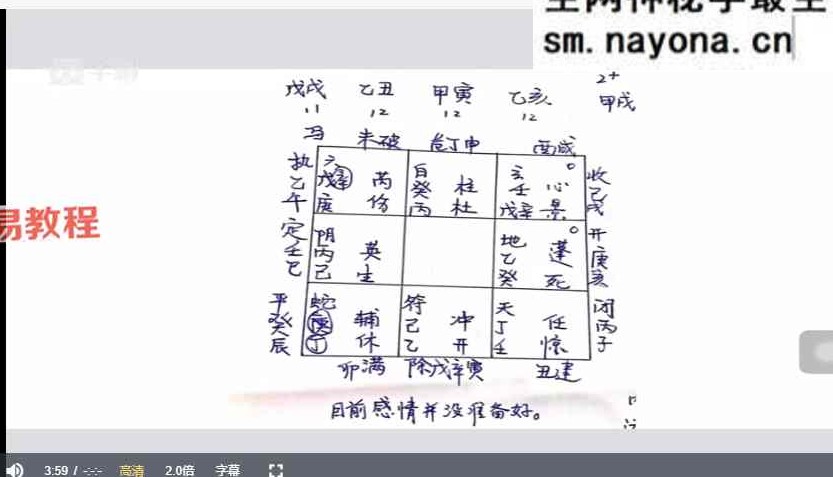 sm.nayona.cn
戊戌 乙丑 甲寅 乙亥 甲戌
11 12 12 12 2+
冯 未破 危丁申 酉成
执乙午 定壬巳 平癸辰
戊辛 芮
庚 伤
白 柱
癸
丙 杜
玄 心
壬
戊辛 景
收己戌 开庚亥 闭丙子
阴 英
丙
己 生
地 蓬
乙
癸 死
蛇 辅
庚
丁 休
符 冲
己
乙 开
天 任
丁
壬 惊
卯满 除戊辛寅 丑建
目前感情并没准备好。
易教程
3:59 / -:-- 高清 2.0倍 字幕